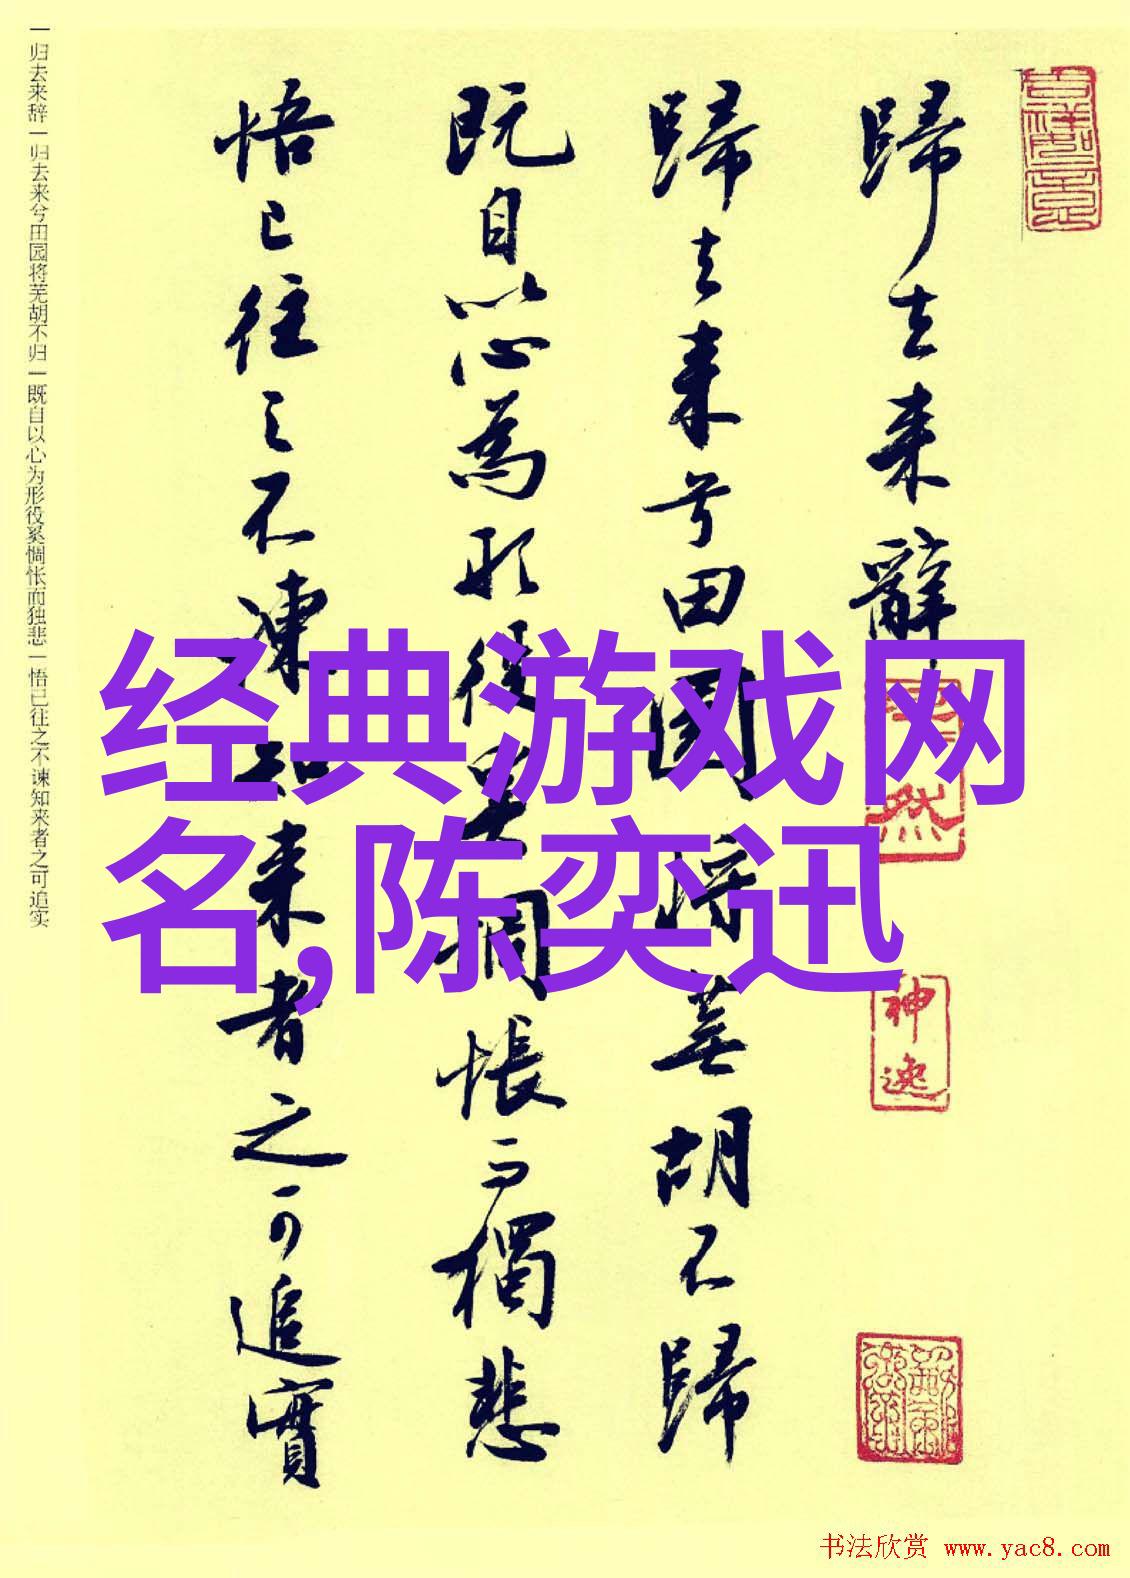 歸去来辭
歸去来兮田園将蕪胡不歸
既自以心為形役奚惆悵而獨悲
悟已往之不諫知来者之可追實
神逸
一归去来辞一归去来兮田园将芜胡不归一既自以心为形役奚惆怅而独悲一悟已往之不谏知来者之可追实
经典游戏网
名,陈奕迅
书法欣赏 www.yac8.com